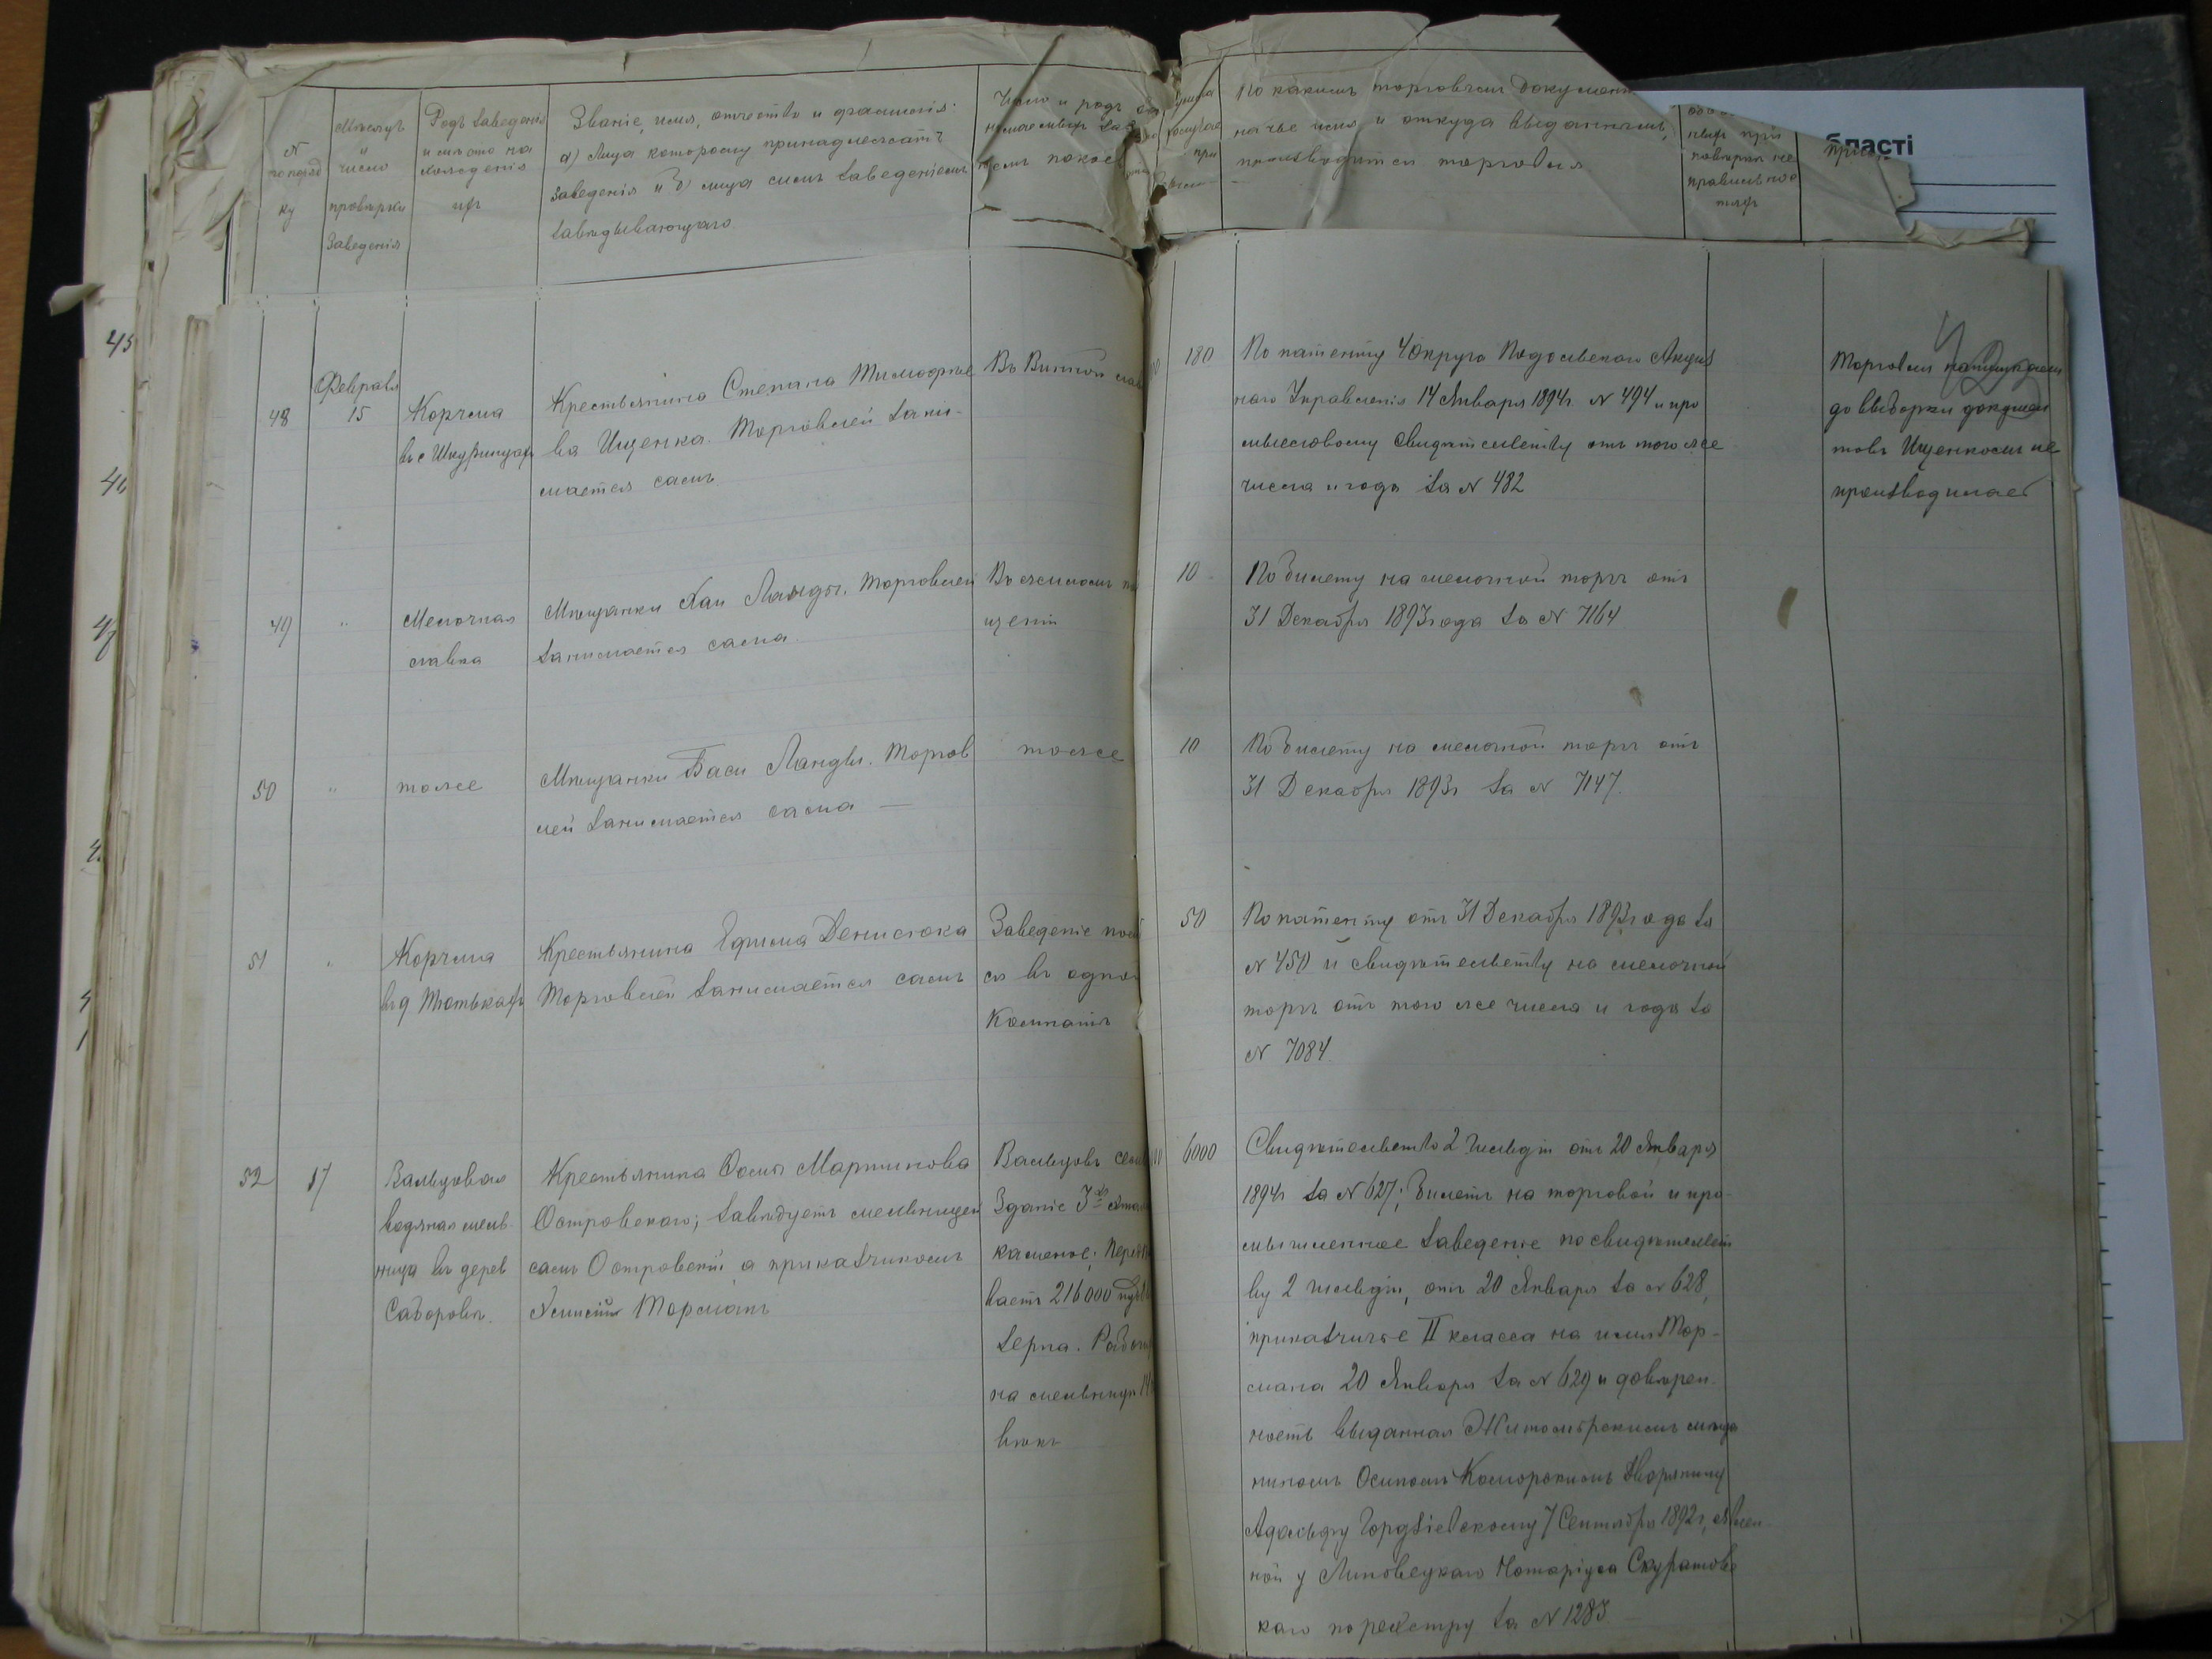 №
по поряд
ку
Мѣсяцъ
и
число
провѣрки
Заведенія
Родъ заведенія
и мѣсто на
хожденія
ихъ
Званіе, имя, отчество и фамилія:
а) Лица которому принадлежатъ
заведенія и б) лица симъ заведеніемъ
завѣдывающаго
Число и родъ
По какимъ торговымъ документ
на чье имя и откуда выданнымъ,
производится торговля
при
повѣркѣ не
правильнос
тяхъ
бласті
48
Февраля
15
Корчма
въ с Шкуринцахъ
Крестьянина Степана Тимофѣе
ва Ищенка. Торговлей зани-
мается самъ
Въ Винной лав
180
По патенту 4 Округа Подольскаго Акциз
наго Управленія 14 Января 1894г № 494 и про
мысловому свидѣтельству отъ того же
числа и года за № 482
Торговли напитками
до выборки докумен
товъ Ищенкомъ не
производилась
49
"
Мелочная
лавка
Мѣщанки Хаи Ланды. Торговлей
занимается сама.
Въ жиломъ по
щеніи
10
По билету на мелочной торгъ отъ
31 Декабря 1893 года за № 7164
50
"
тоже
Мѣщанки Баси Ланды. Торгов
лей занимается сама —
тоже
10
По билету на мелочной торгъ отъ
31 Декабря 1893г за № 7147.
51
"
Корчма
въ д Тютькахъ
Крестьянина Ефима Денисюка
Торговлей занимается самъ
Заведеніе
ся въ одной
Комнатѣ
50
По патенту отъ 31 Декабря 1893 года за
№ 450 и свидѣтельству на мелочной
торгъ отъ того же числа и года за
№ 7084.
52
17
Вальцовая
водяная мель-
ница въ дерев
Сабаровѣ.
Крестьянина Осипа Мартинова
Островскаго; завѣдуетъ мельницей
самъ Островскій а прикащикомъ
Торманъ
Вальцовъ семь
Зданіе 3хъ этаж
каменное; Перем
ваетъ 216000 пудовъ
зерна. Рабочихъ
на мельницѣ 14
вѣкъ
6000
Свидѣтельство 2 гильдіи отъ 20 Января
1894г за № 627; билетъ на торговое и про-
мышленное заведеніе по свидѣтельст
ву 2 гильдіи, отъ 20 Января за № 628,
приказчичье II класса на имя Тор-
мана 20 Января за № 629 и довѣрен-
ность выданная Житомірскимъ мѣща
ниномъ Осипомъ Дворянину
Адольфу Гордзіевскому 7 Сентября 1892г, явлен
ной у Липовецкаго Нотаріуса Скуратовс
каго по реестру за № 1285 —